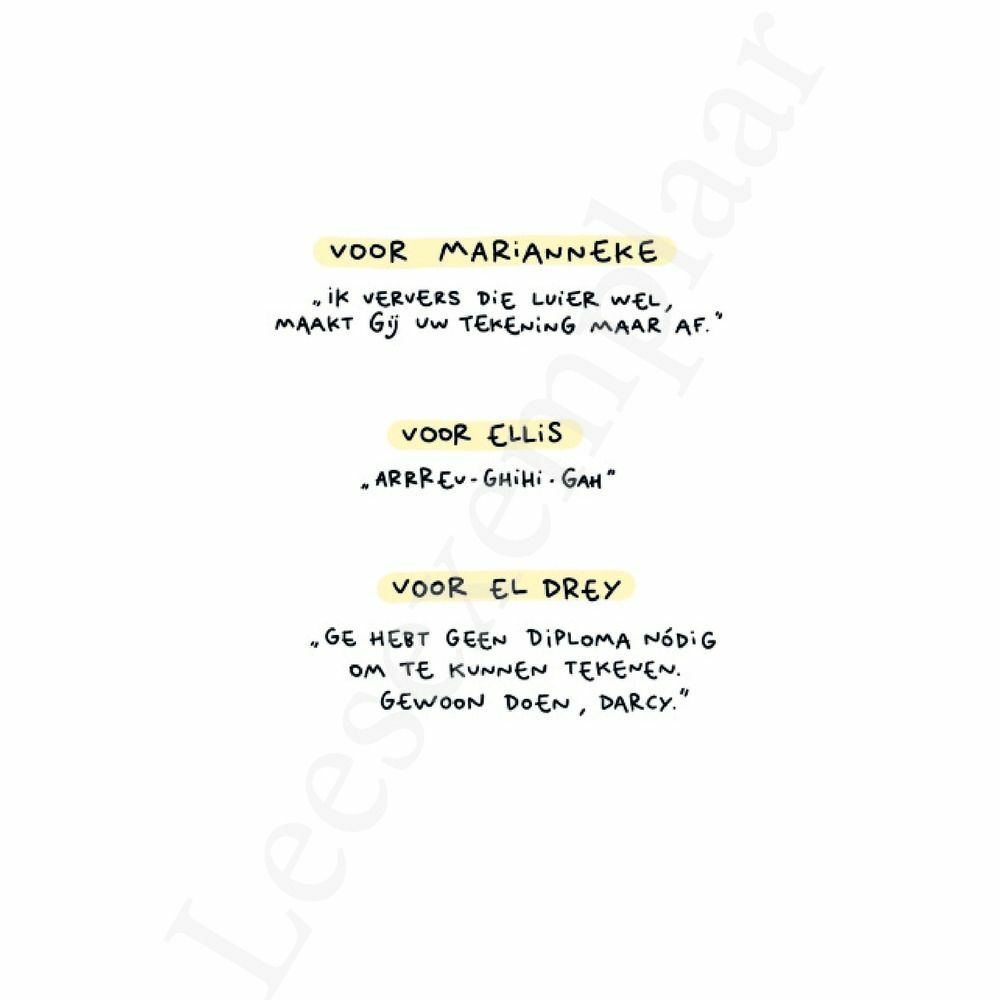 VOOR MARIANNEKE
„IK VERVERS DIE LUIER WEL,
MAAKT GIJ UW TEKENING MAAR AF."
VOOR ELLIS
„ARRREU-GHIHI-GAH"
VOOR EL DREY
„GE HEBT GEEN DIPLOMA NÓDIG
OM TE KUNNEN TEKENEN.
GEWOON DOEN, DARCY."
Leesexemplaar